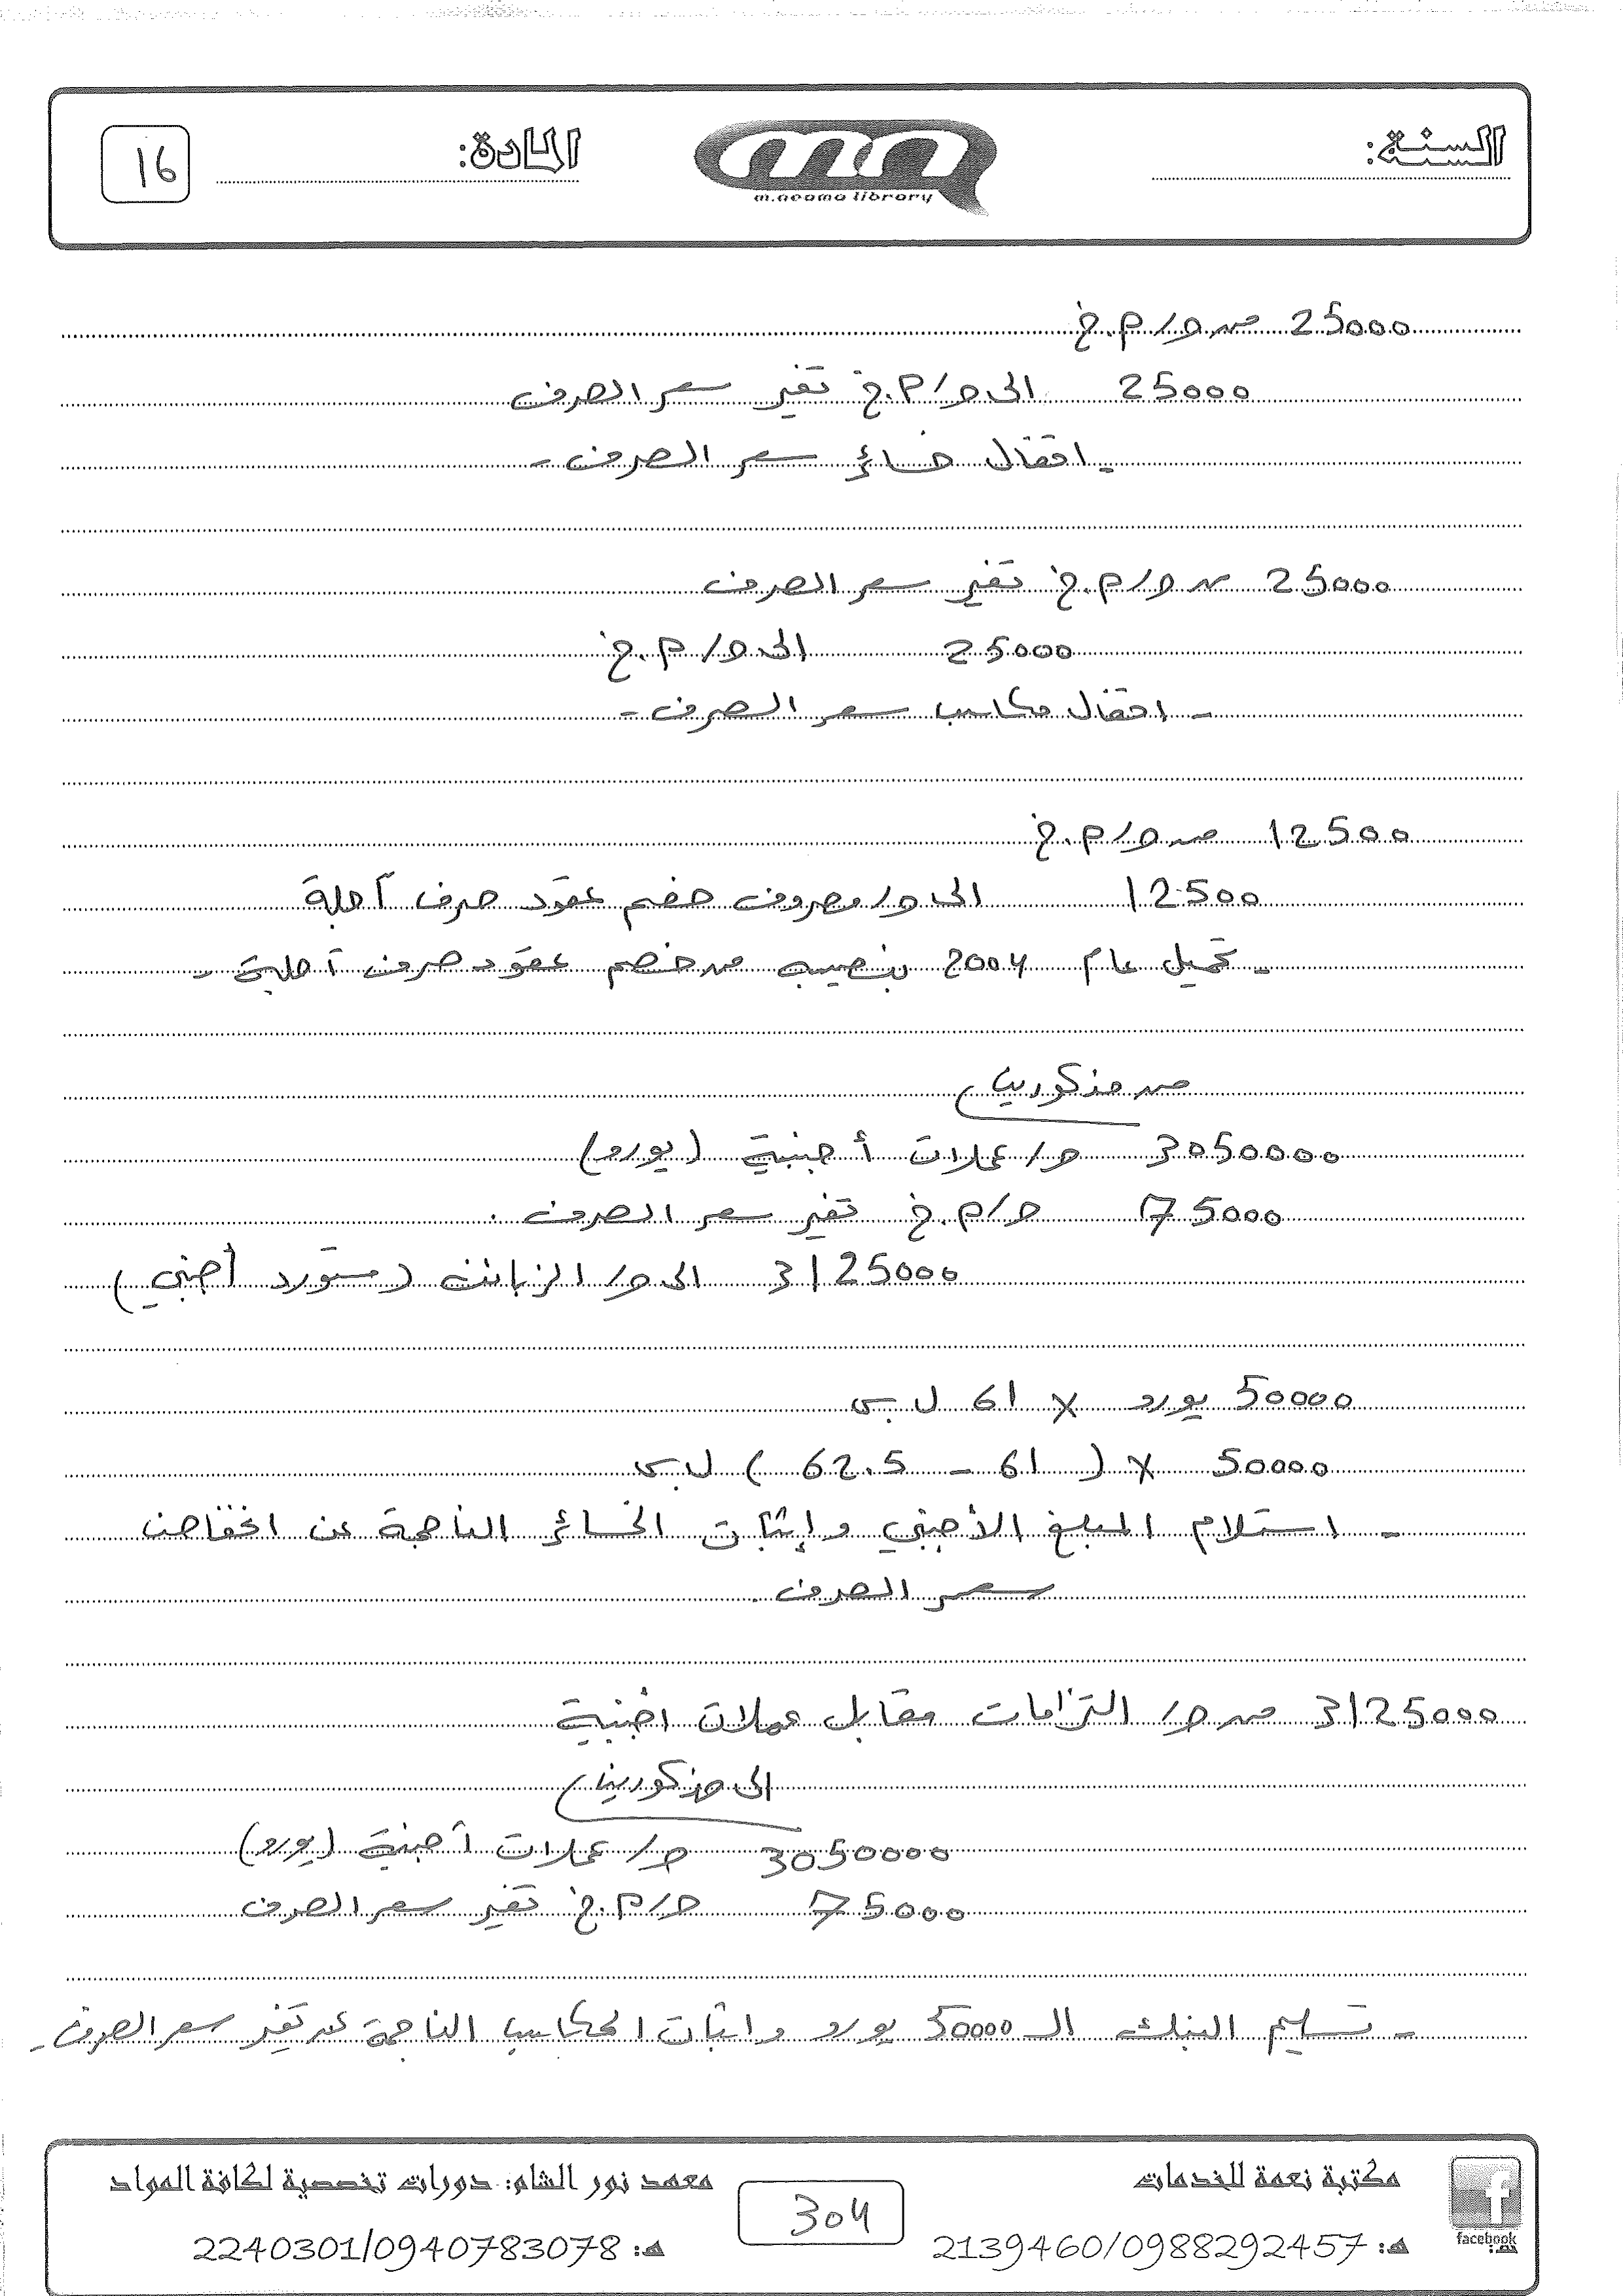 السنة:
m.neama library
المادة:
16
25000 من حـ/ م.خ
25000 الى حـ/ م.خ تغير سعر الصرف
- اقفال خسائر سعر الصرف -
25000 من حـ/ م.خ تغير سعر الصرف
25000 الى حـ/ م.خ
- اقفال مكاسب سعر الصرف -
12500 من حـ/ م.خ
12500 الى حـ/ مصروف خصم عقود صرف آجلة
- تحميل عام 2004 بنصيبه من خصم عقود صرف آجلة -
من مذكورين
3050000 حـ/ عملات أجنبية (يورو)
75000 حـ/ م.خ تغير سعر الصرف .
3125000 الى حـ/ الزبائن (مستورد أجنبي)
50000 يورو × 61 ل.س
50000 × (61 - 62.5) ل.س
- استلام المبلغ الأجنبي وإثبات الخسائر الناجمة عن انخفاض
سعر الصرف .
3125000 من حـ/ التزامات مقابل عملات اجنبية
الى مذكورين
3050000 حـ/ عملات أجنبية (يورو)
75000 حـ/ م.خ تغير سعر الصرف
- تسليم البنك الـ 50000 يورو واثبات المكاسب الناجمة عن تغير سعر الصرف -
facebook
مكتبة نعمة للخدمات
هـ: 2139460/0988292457
304
معهد نور الشام: دورات تخصصية لكافة المواد
هـ: 2240301/0940783078